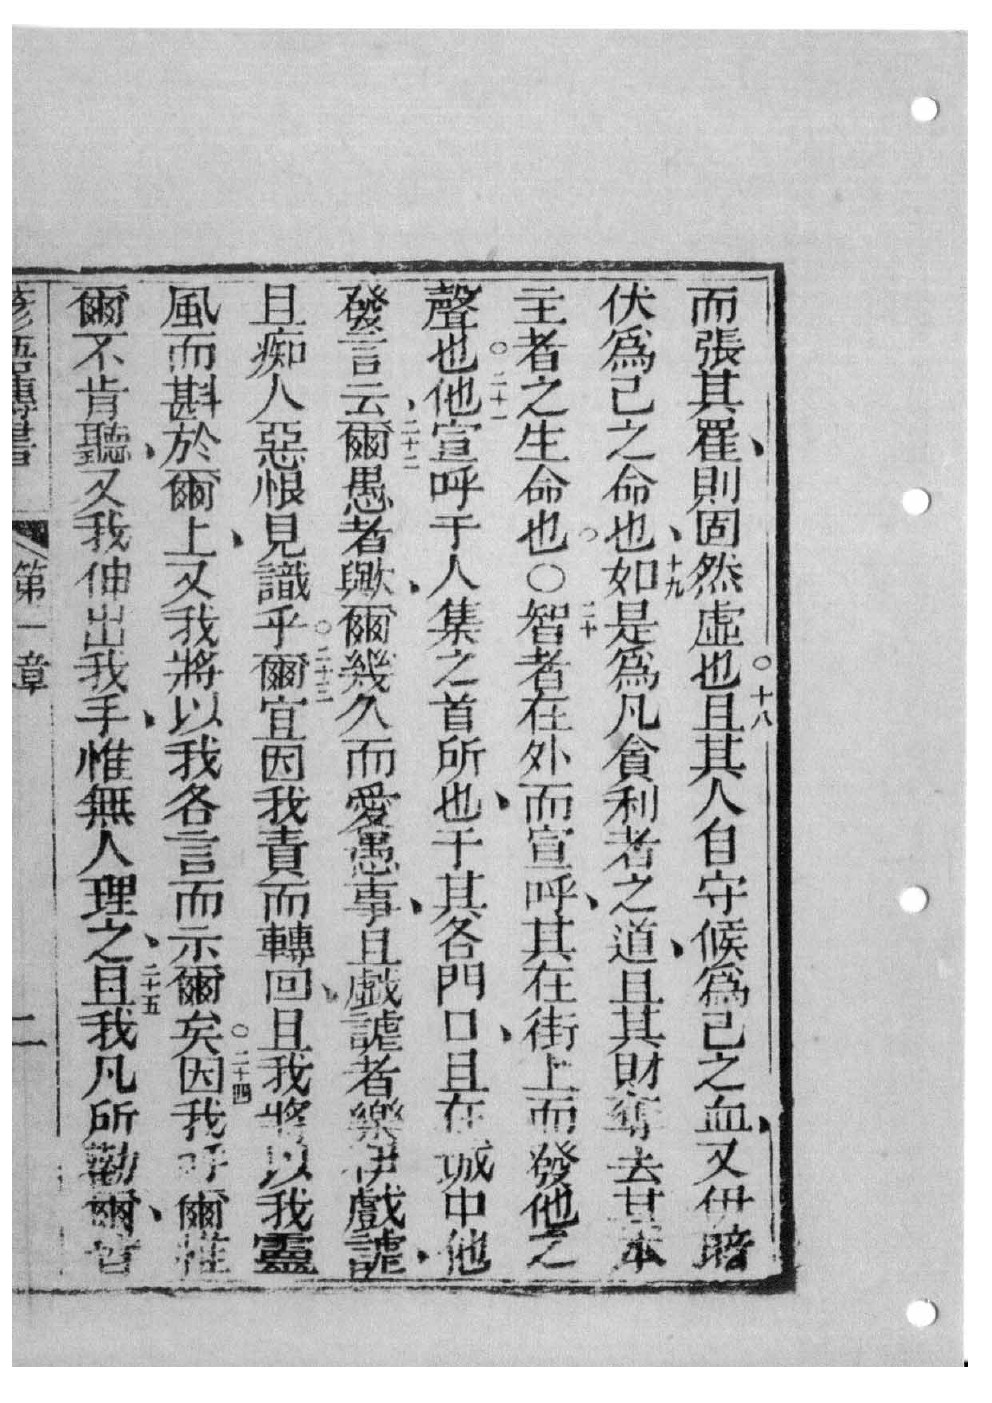 而張其羅、則固然虛也。十八且其人自守候為己之血、又伊暗
伏為己之命也、十九如是為凡貪利者之道、且其財奪去其本
主者之生命也。〇二十智者在外而宣呼、其在街上而發他之
聲也。二十一他宣呼于人集之首所也、于其各門口、且在城中他
發言云、二十二爾愚者歟、爾幾久而愛愚事、且戲謔者樂伊戲謔、
且痴人惡恨見識乎。二十三爾宜因我責而轉回、且我將以我靈
風而斟於爾上、又我將以我各言而示爾矣。二十四因我呼爾惟
爾不肯聽、又我伸出我手、惟無人理之、二十五且我凡所勸爾、皆
箴語傳書 第一章 二